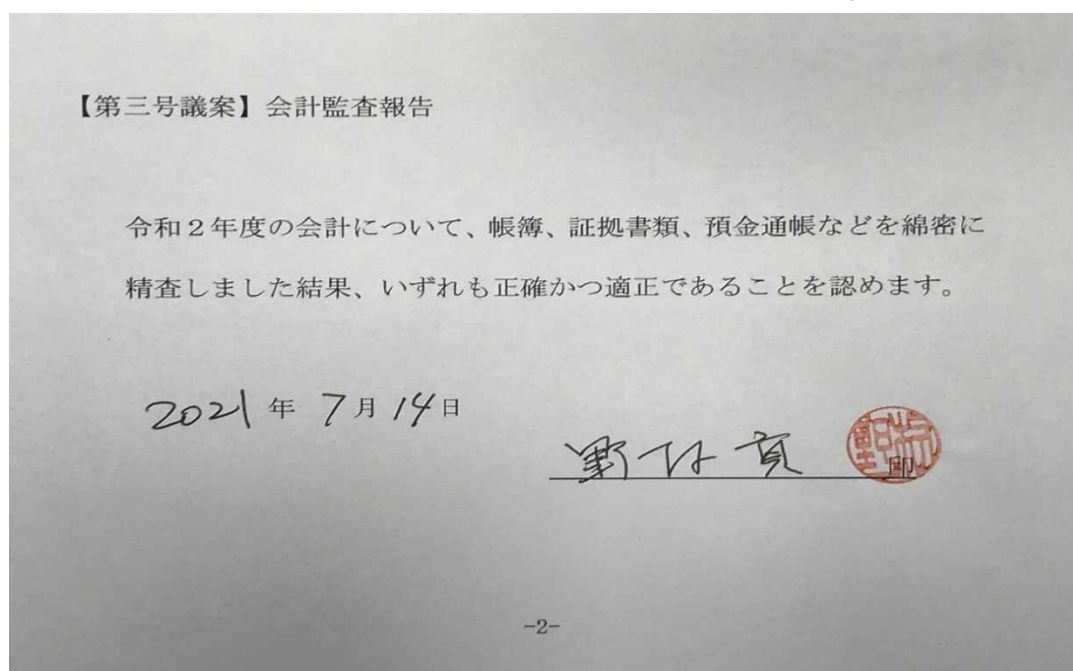 【第三号議案】会計監査報告
令和2年度の会計について、帳簿、証拠書類、預金通帳などを綿密に
精査しました結果、いずれも正確かつ適正であることを認めます。
2021年 7月14日
野村 印
-2-